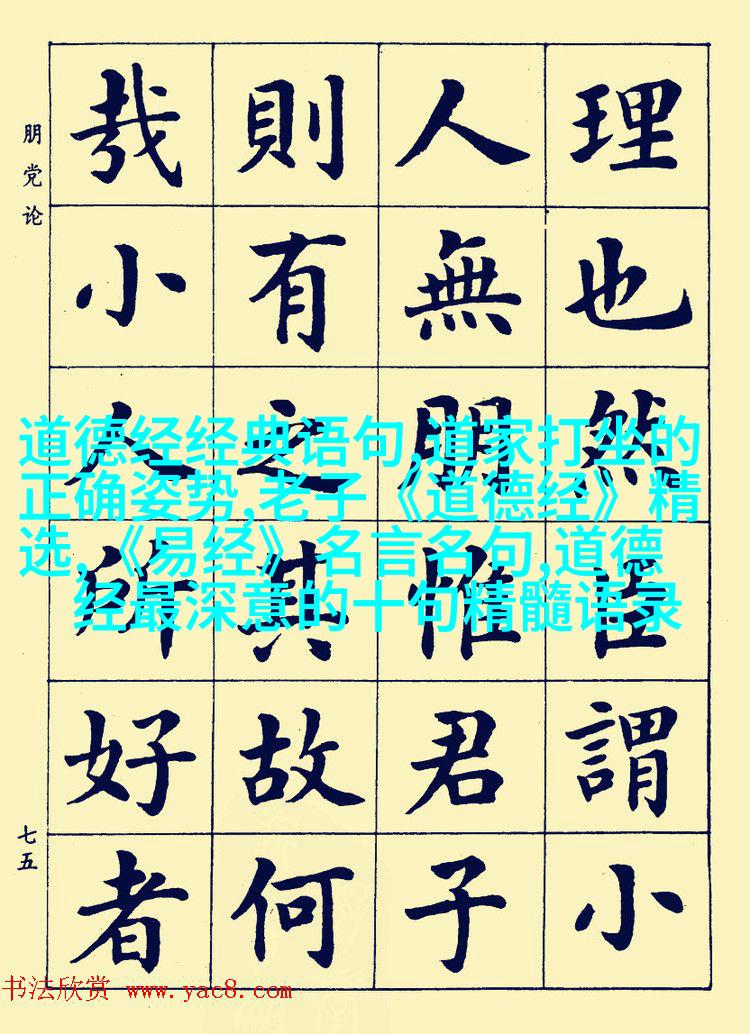 理也然臣謂小
人無朋惟君子
則有之其故何
哉小人所好者
朋党论
七五
道德经经典语句,道家打坐的
正确姿势,老子《道德经》精
选,《易经》名言名句,道德
经最深意的十句精髓语录
书法欣赏 www.yac8.com